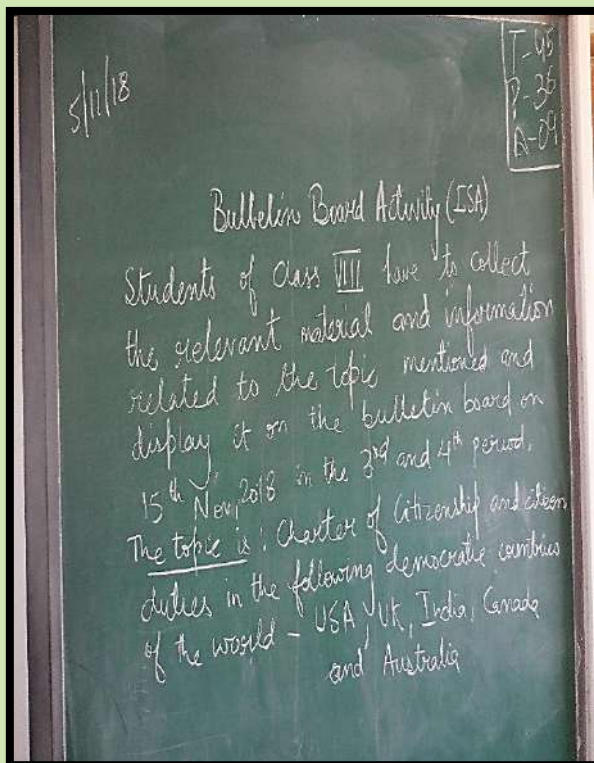 5/11/18
T-45
P-36
A-09
Bulletin Board Activity (ISA)
Students of Class VIII have to collect
the relevant material and information
related to the topic mentioned and
display it on the bulletin board on
15th Nov, 2018 in the 3rd and 4th period.
The topic is: Charter of Citizenship and citizen
duties in the following democratic countries
of the world - USA, UK, India, Canada
and Australia